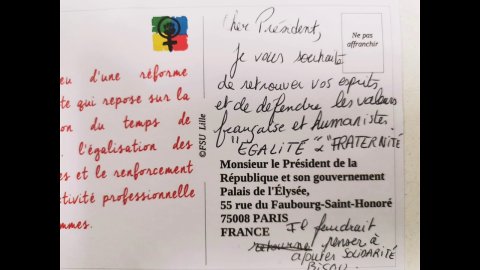 Cher Président,
Ne pas
affranchir
je vous souhaite
de retrouver vos esprits
et de défendre les valeurs
française et humanistes.
"EGALITE" & "FRATERNITÉ
eu d'une réforme
te qui repose sur la
on du temps de
l'égalisation des
es et le renforcement
ctivité professionnelle
mmes.
©FSU Lille
Monsieur le Président de la
République et son gouvernement
Palais de l'Élysée,
55 rue du Faubourg-Saint-Honoré
75008 PARIS
FRANCE
Il faudrait
penser à
ajouter SOLIDARITÉ
BISOU